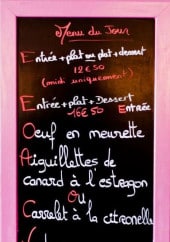 Menu du Jour
Entrée + plat ou plat + dessert
12€50
(midi uniquement)
Entrée + plat + Dessert
16€50 Entrée
Oeuf en meurette
Aiguillettes de
canard à l'estragon
ou
Carrelet à la citronelle